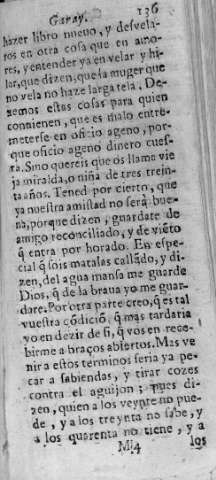 Garay. 136
hazer libro nueuo, y desvela-
ros en otra cosa que en amo-
res, y entender ya en velar y hi
lar, que dizen, que la muger que
no vela no haze larga tela. De
xemos estas cosas para quien
conuienen, que es malo entre-
meterse en oficio ageno, por-
que oficio ageno dinero cues-
tra. Sino quereis que os llame vie
ja miralda, o niña de tres trein-
ta años. Tened por cierto, que
ya nuestra amistad no será bue-
na, porque dizen, guardate de
amigo reconciliado, y de viẽto
q̃ entra por horado. En espe-
cial q̃ sois matalas callãdo, y di
zen, del agua mansa me guarde
Dios, q̃ de la braua yo me guar-
dare. Por otra parte creo, q̃ es tal
vuestra cõdiciõ, q̃ mas tardaria
yo en dezir de si, q̃ vos en rece-
birme a braços abiertos. Mas ve
nir a estos terminos seria ya pe-
car a sabiendas, y tirar cozes
contra el aguijon; pues di-
zen, quien a los veynte no pue-
de, y a los treynta no sabe, y
a los quarenta no tiene, y a
M4 los